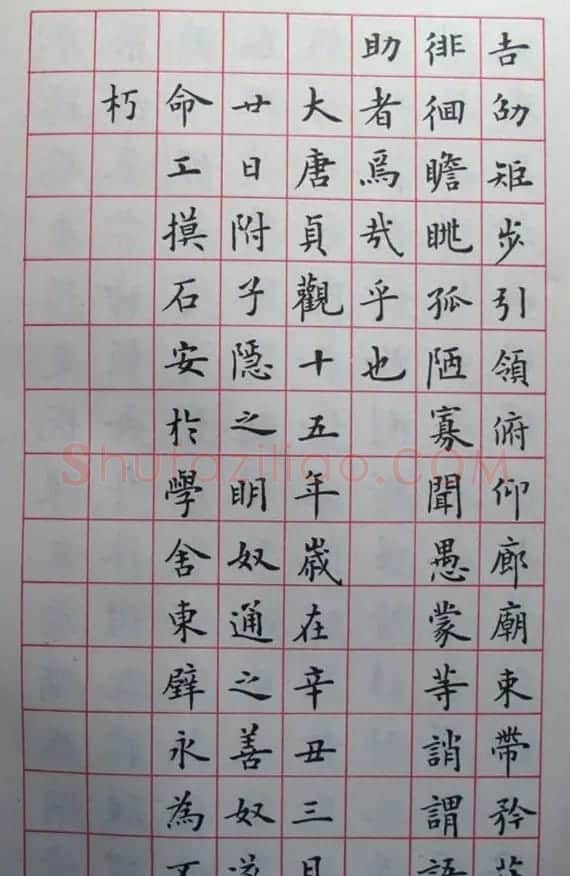 吉劭矩步引領俯仰廊廟束帶矜
徘徊瞻眺孤陋寡聞愚蒙等誚謂語
助者焉哉乎也
大唐貞觀十五年歲在辛丑三月
廿日附子隱之明奴通之善奴
命工摸石安於學舍東壁永為不
朽
Shufaziliao.COM